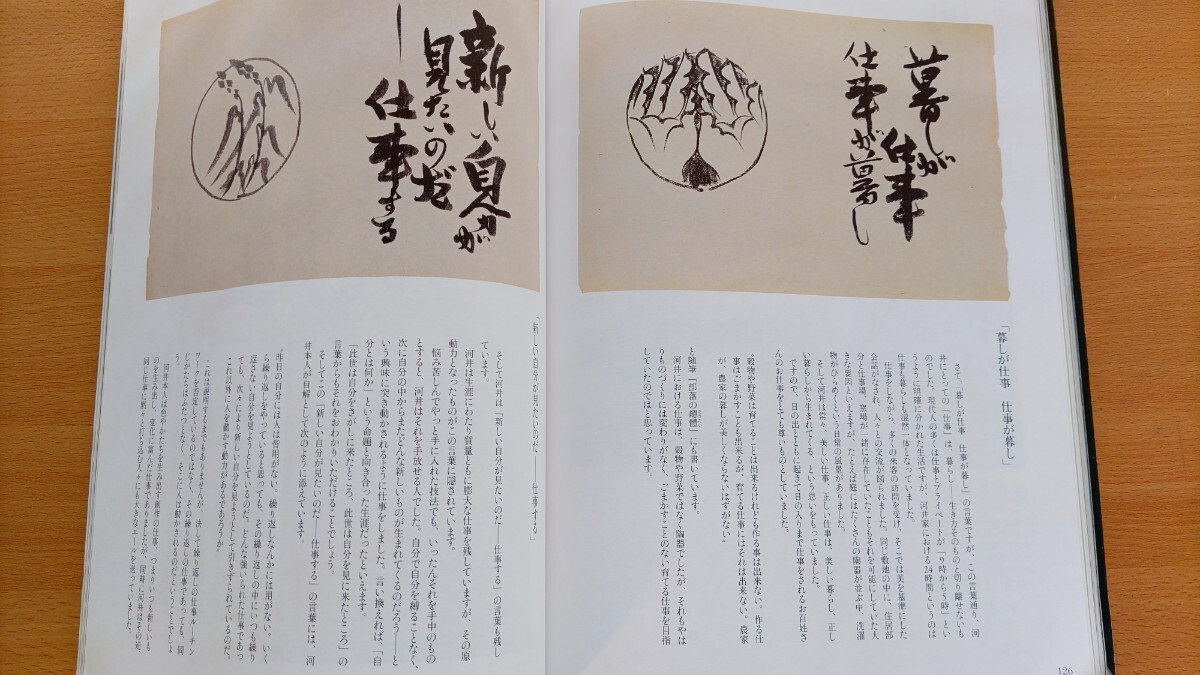 暮しが仕事
仕事が暮し
「暮しが仕事　仕事が暮し」
さて、「暮しが仕事　仕事が暮し」の言葉ですが、この言葉通り、河
井にとっての「仕事」は、暮らし――生き方そのものと切り離せないも
のでした。現代人の多くは仕事とプライベートが「9時から5時」とい
うように明確に分かれた生活ですが、河井家における24時間というのは
仕事も暮らしも混然一体となっていました。
仕事をしながら、多くの来客の訪問を受け、そこでは美を基準にした
会話がなされ、人々との交流が図られました。同じ敷地の中に、住居部
分と仕事場、窯場が一緒に存在してたこともそれを可能にしていた大
きな要因といえますが、たとえば庭にはたくさんの陶器が並ぶ中、洗濯
物がひらめくという日常の風景がありました。
そして河井は常々、美しい仕事、正しい仕事は、美しい暮らし、正し
い暮らしから生まれてくる、という思いをもっていました。
ですので、日の出とともに起き、日の入りまで仕事をされるお百姓さ
んのお仕事をとても尊いものとしていました。
「穀物や野菜は育てることは出来るけれども作る事は出来ない。作る仕
事はごまかすことも出来るが、育てる仕事にはそれは出来ない。農家
が、農家の暮しが美しくならないはずがない」
と随筆「部落の總體」にも書いています。
河井における仕事は、穀物や野菜ではなく陶器でしたが、それもやは
りものづくりには変わりがなく、ごまかすことのない育てる仕事を目指
していたのではと思っています。
126
新しい自分が
見たいのだ
―仕事する
「新しい自分が見たいのだ――仕事する」
そして河井は「新しい自分が見たいのだ――仕事する」の言葉も残し
ています。
河井は生涯にわたり質量ともに膨大な仕事を残していますが、その原
動力となったものがこの言葉に隠されています。
悩み苦しんでやっと手に入れた技法でも、いったんそれを手中のもの
とすると、河井はそれを手放せる人でした。自分で自分を縛ることなく、
次に自分の中からまたどんな新しいものが生まれてくるのだろう――と
いう興味に突き動かされるように仕事をしました。言い換えれば、「自
分とは何か」という命題と向き合った生涯だったといえます。
「此世は自分をさがしに来たところ、此世は自分を見に来たところ」の
言葉からもそれをおわかりいただけることでしょう。
そしてこの「新しい自分が見たいのだ――仕事する」の言葉には、河
井本人が自解として次のように添えています。
"昨日の自分には人は皆用がない。繰り返しなんかには用がない。いく
ら繰り返しをやっていると思っても、その繰り返しの中にいつも繰り
返さない自分を見ようとしているのだ。どんな強いられた仕事であっ
ても、次々により新しい自分を見ようとして引きずられているのだ。
これ以外に人を動かす動力があるであろうか"
これは説明するまでもありませんが、決して繰り返しの仕事ルーチン
ワークを否定しているのではなく、その繰り返しの仕事であっても、同
じかたちはふたつとなく、そこに人は動かされるのだということでしょ
う。
河井本人は色やかたちを生み出す創作の仕事、つまりいつも新しいも
のを生み出し、変化に富んだ仕事でありましたが、同時に河井はその実、
同じ仕事に黙々と打ち込む人々にも大きなエールを送っていました。